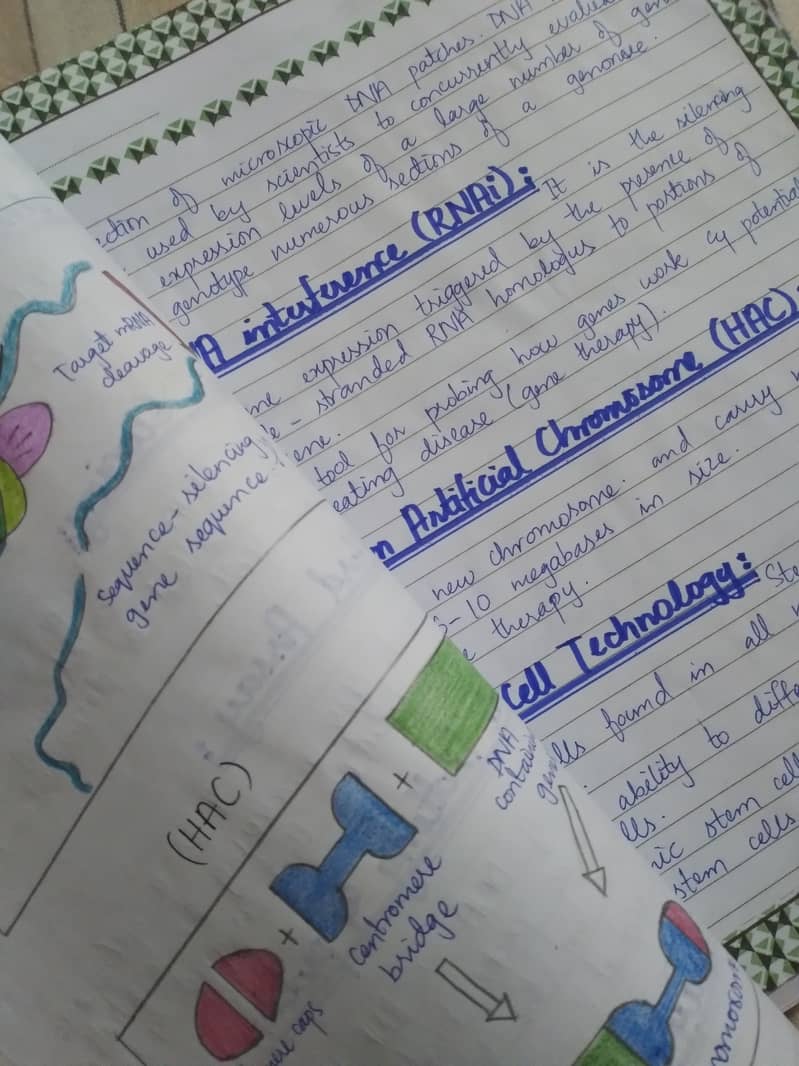 ection of microscopic DNA patches. DNA
used by scientists to concurrently evaluate
expression levels of a large number of gen
genotype numerous sections of a genome.
A interference (RNAi): It is the silencing
ne expression triggered by the presence of
le-stranded RNA homologus to portions of
ene.
tool for probing how genes work cy potential
eating disease (gene therapy).
n Artificial Chromosome (HAC):
new chromosome. and carry
6-10 megabases in size.
e therapy.
Cell Technology: Ste
lls found in all
ability to diffe
lls.
ic stem cell
stem cells
Target mRNA
cleavage
Sequence-silencing
gene sequence.
(HAC)
+
DNA
containi
gene
+
centromere
bridge
mere caps
omosome